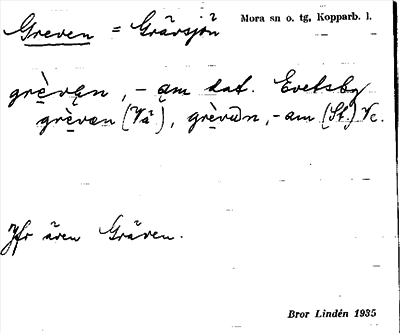 Greven = Grävsjön
Mora sn o. tg, Kopparb. l.
grèvęn, -am dat. Evertsby
grèvæn (Vå), grèvωn, -am (St.) Vc.
Jfr även Gräven.
Bror Lindén 1935